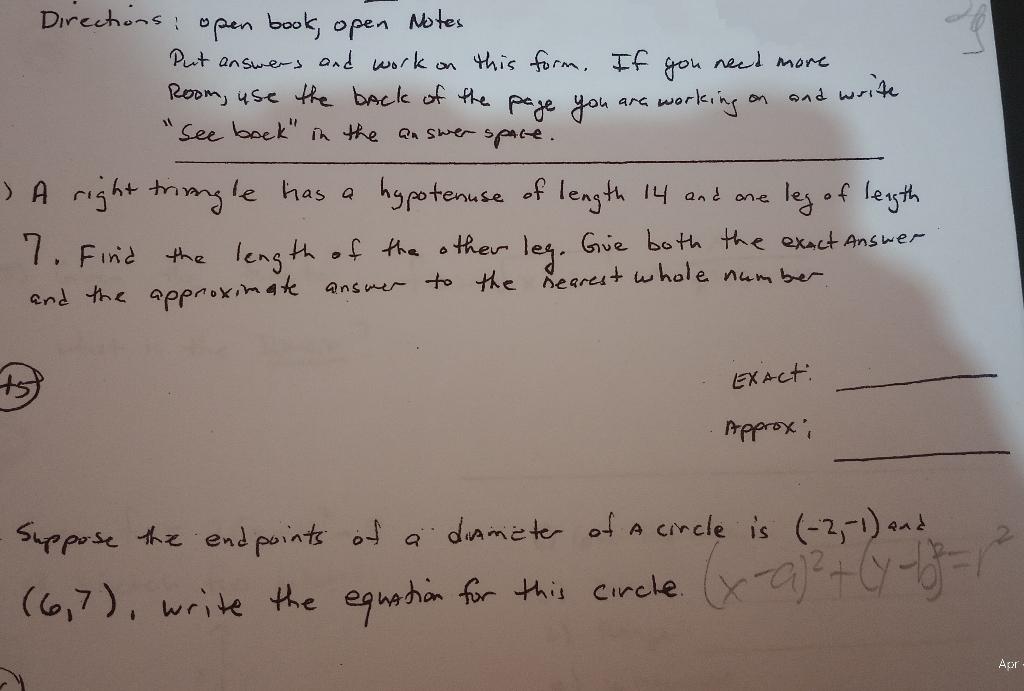 Directions: open book, open Notes
Put answers and work on this form. If you need more
Room, use the back of the page you are working on and write
"See back" in the answer space.
) A right triangle has a hypotenuse of length 14 and one leg of length
7. Find the length of the other leg. Give both the exact Answer
and the approximate answer to the nearest whole number
+5
EXACT:
Approx:
Suppose the endpoints of a diameter of A circle is (-2,-1) and
(6,7), write the equation for this circle. (x-a)²+(y-b)²=r²
Apr